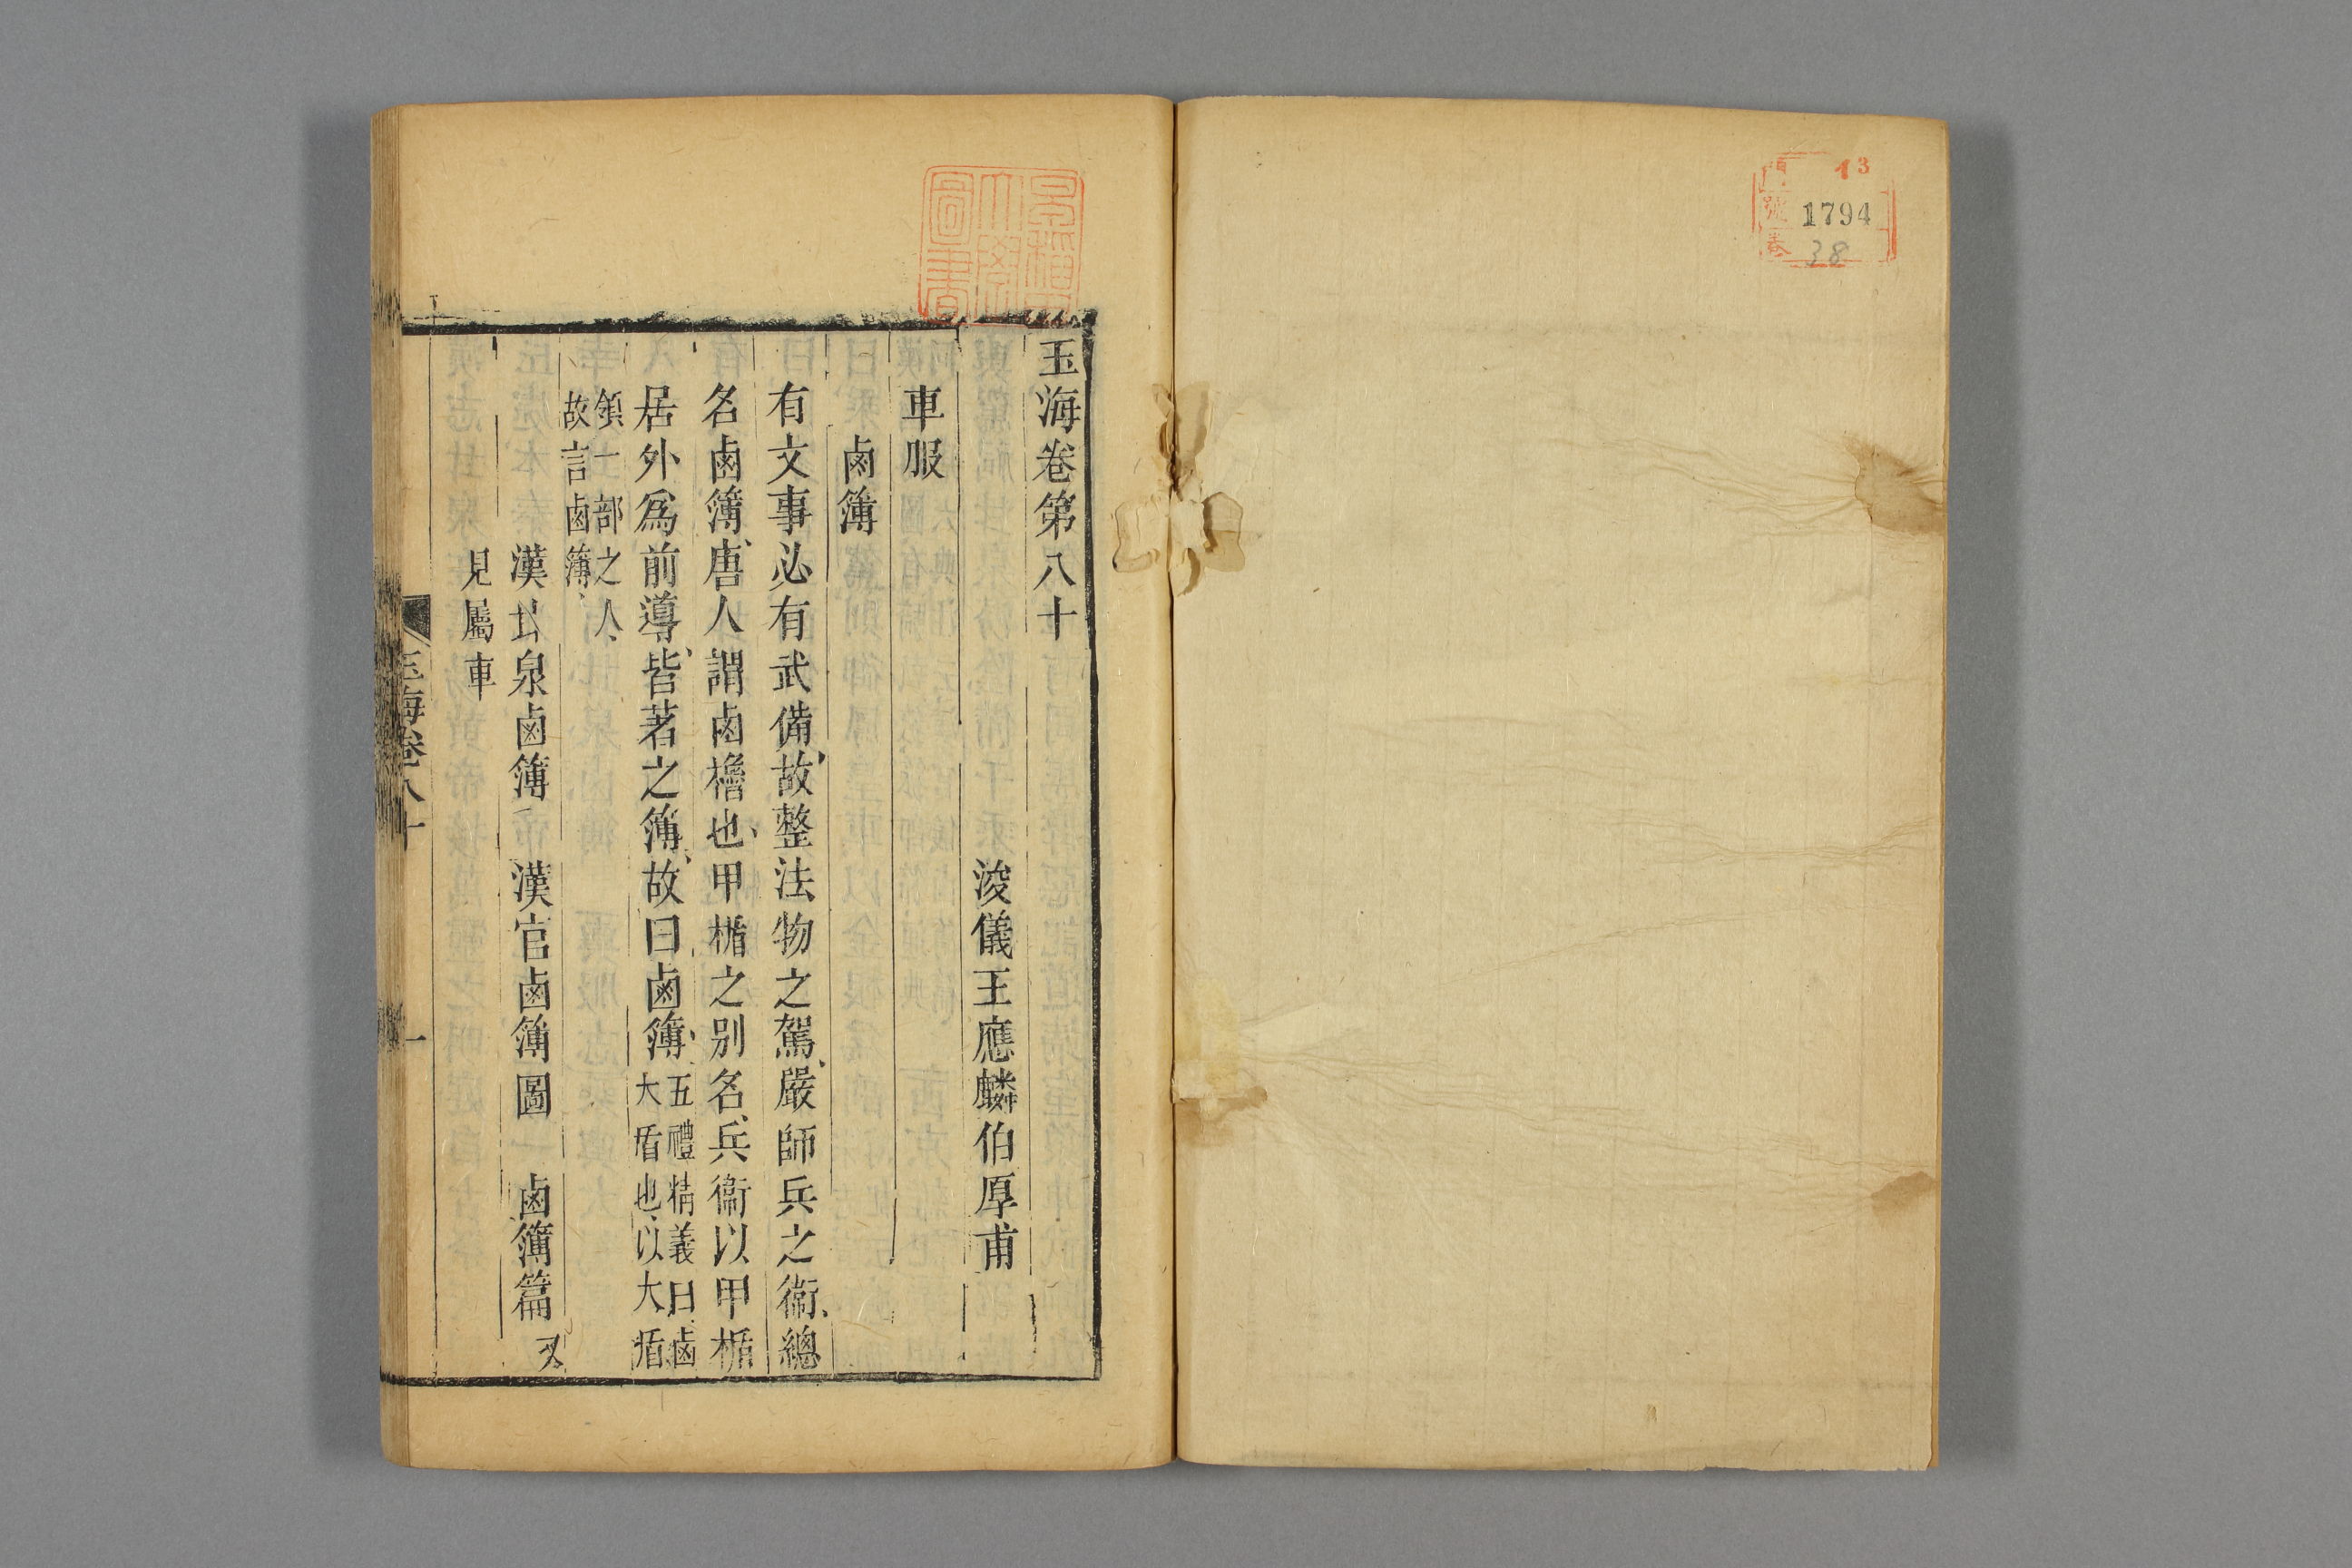 門 13
號 1794
卷 38
早稲田大學圖書
玉海卷第八十
浚儀王應麟伯厚甫
車服
鹵簿
有文事必有武備、故整法物之駕、嚴師兵之衞、總
名鹵簿、唐人謂鹵櫓也、甲楯之别名、兵衞以甲楯
居外爲前導、皆著之簿、故曰鹵簿、五禮精義曰鹵
大盾也、以大盾
領一部之人、
故言鹵簿、
漢甘泉鹵簿 漢官鹵簿圖 鹵簿篇 又
見屬車
玉海卷八十 一